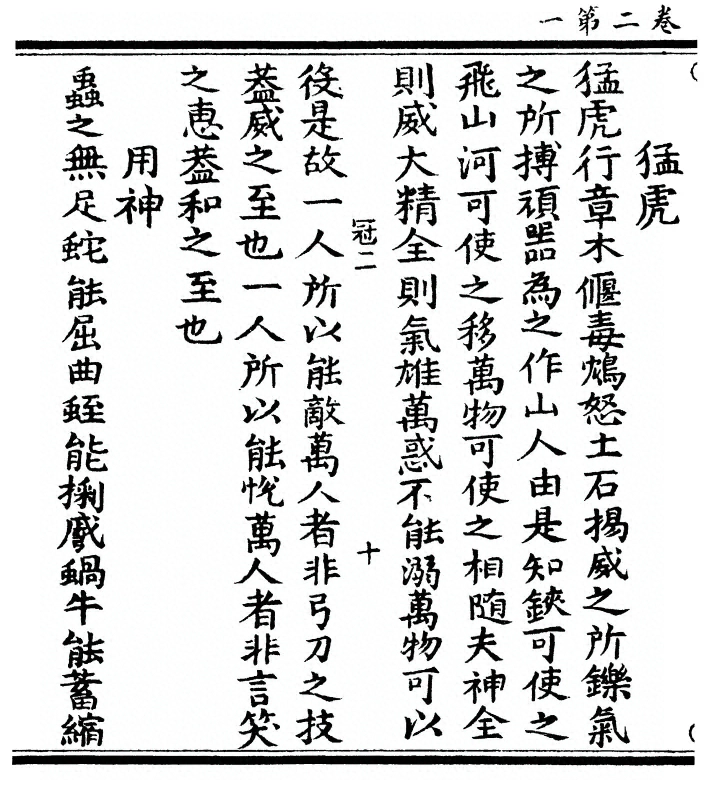 卷二第一
猛虎
猛虎行章木偃毒鴆怒土石揭威之所鑠氣
之所搏頑嚚為之作山人由是知鋏可使之
飛山河可使之移萬物可使之相随夫神全
則威大精全則氣雄萬惑不能溺萬物可以
冠二　十
役是故一人所以能敵萬人者非弓刀之技
葢威之至也一人所以能恱萬人者非言笑
之惠葢和之至也
用神
蟲之無足蛇能屈曲蛭能掬蹙蝸牛能蓄縮